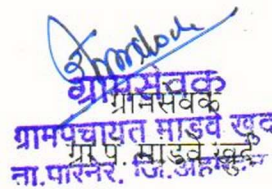 ग्रामसेवक
ग्रामसेवक
ग्रामपंचायत माडवे खुर्द
ग्रा.प. माडवे खुर्द
ता.पारनेर, जि.